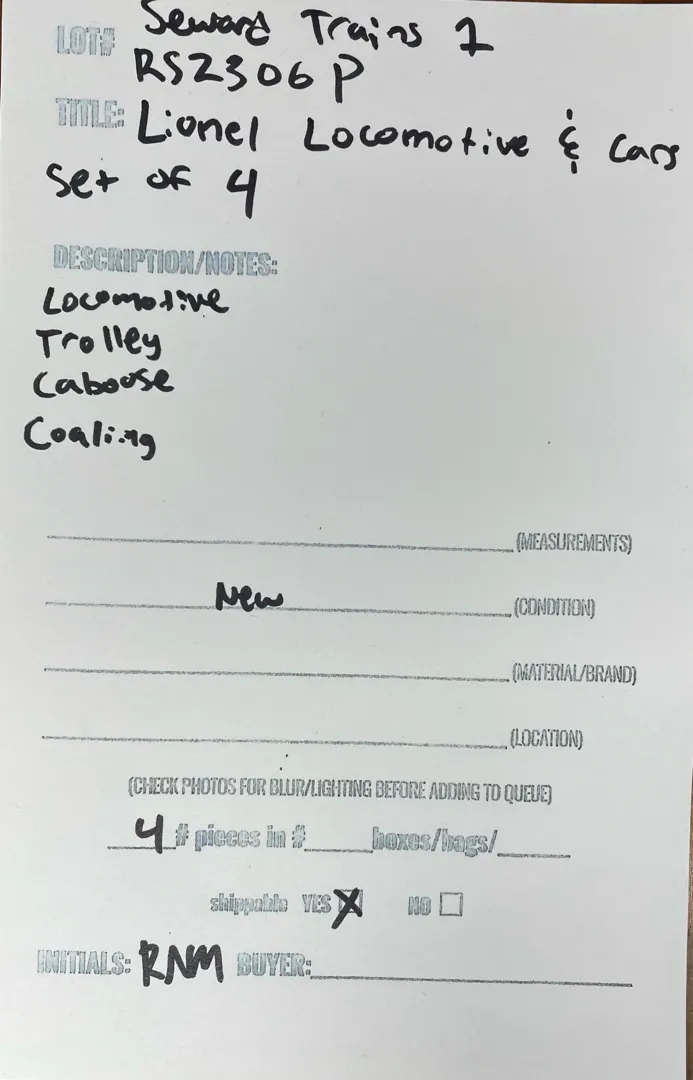 LOT# Seward Trains 1
RS2306P
TITLE: Lionel Locomotive & Cars
Set of 4
DESCRIPTION/NOTES:
Locomotive
Trolley
Caboose
Coaling
(MEASUREMENTS)
New (CONDITION)
(MATERIAL/BRAND)
(LOCATION)
(CHECK PHOTOS FOR BLUR/LIGHTING BEFORE ADDING TO QUEUE)
4 # pieces in # boxes/bags/
shippable YES X NO
INITIALS: RNM BUYER: